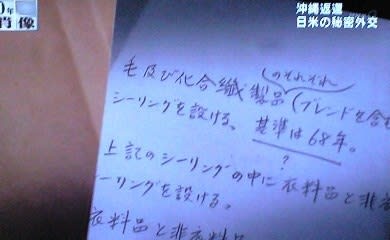 0年
肖像
沖縄返還
日米の秘密外交
のそれぞれ
毛及び化合繊製品(ブレンドを含む
シーリングを設ける。基準は68年。
?
上記のシーリングの中に衣料品と非衣
ーリングを設ける。
衣料品と非衣料品